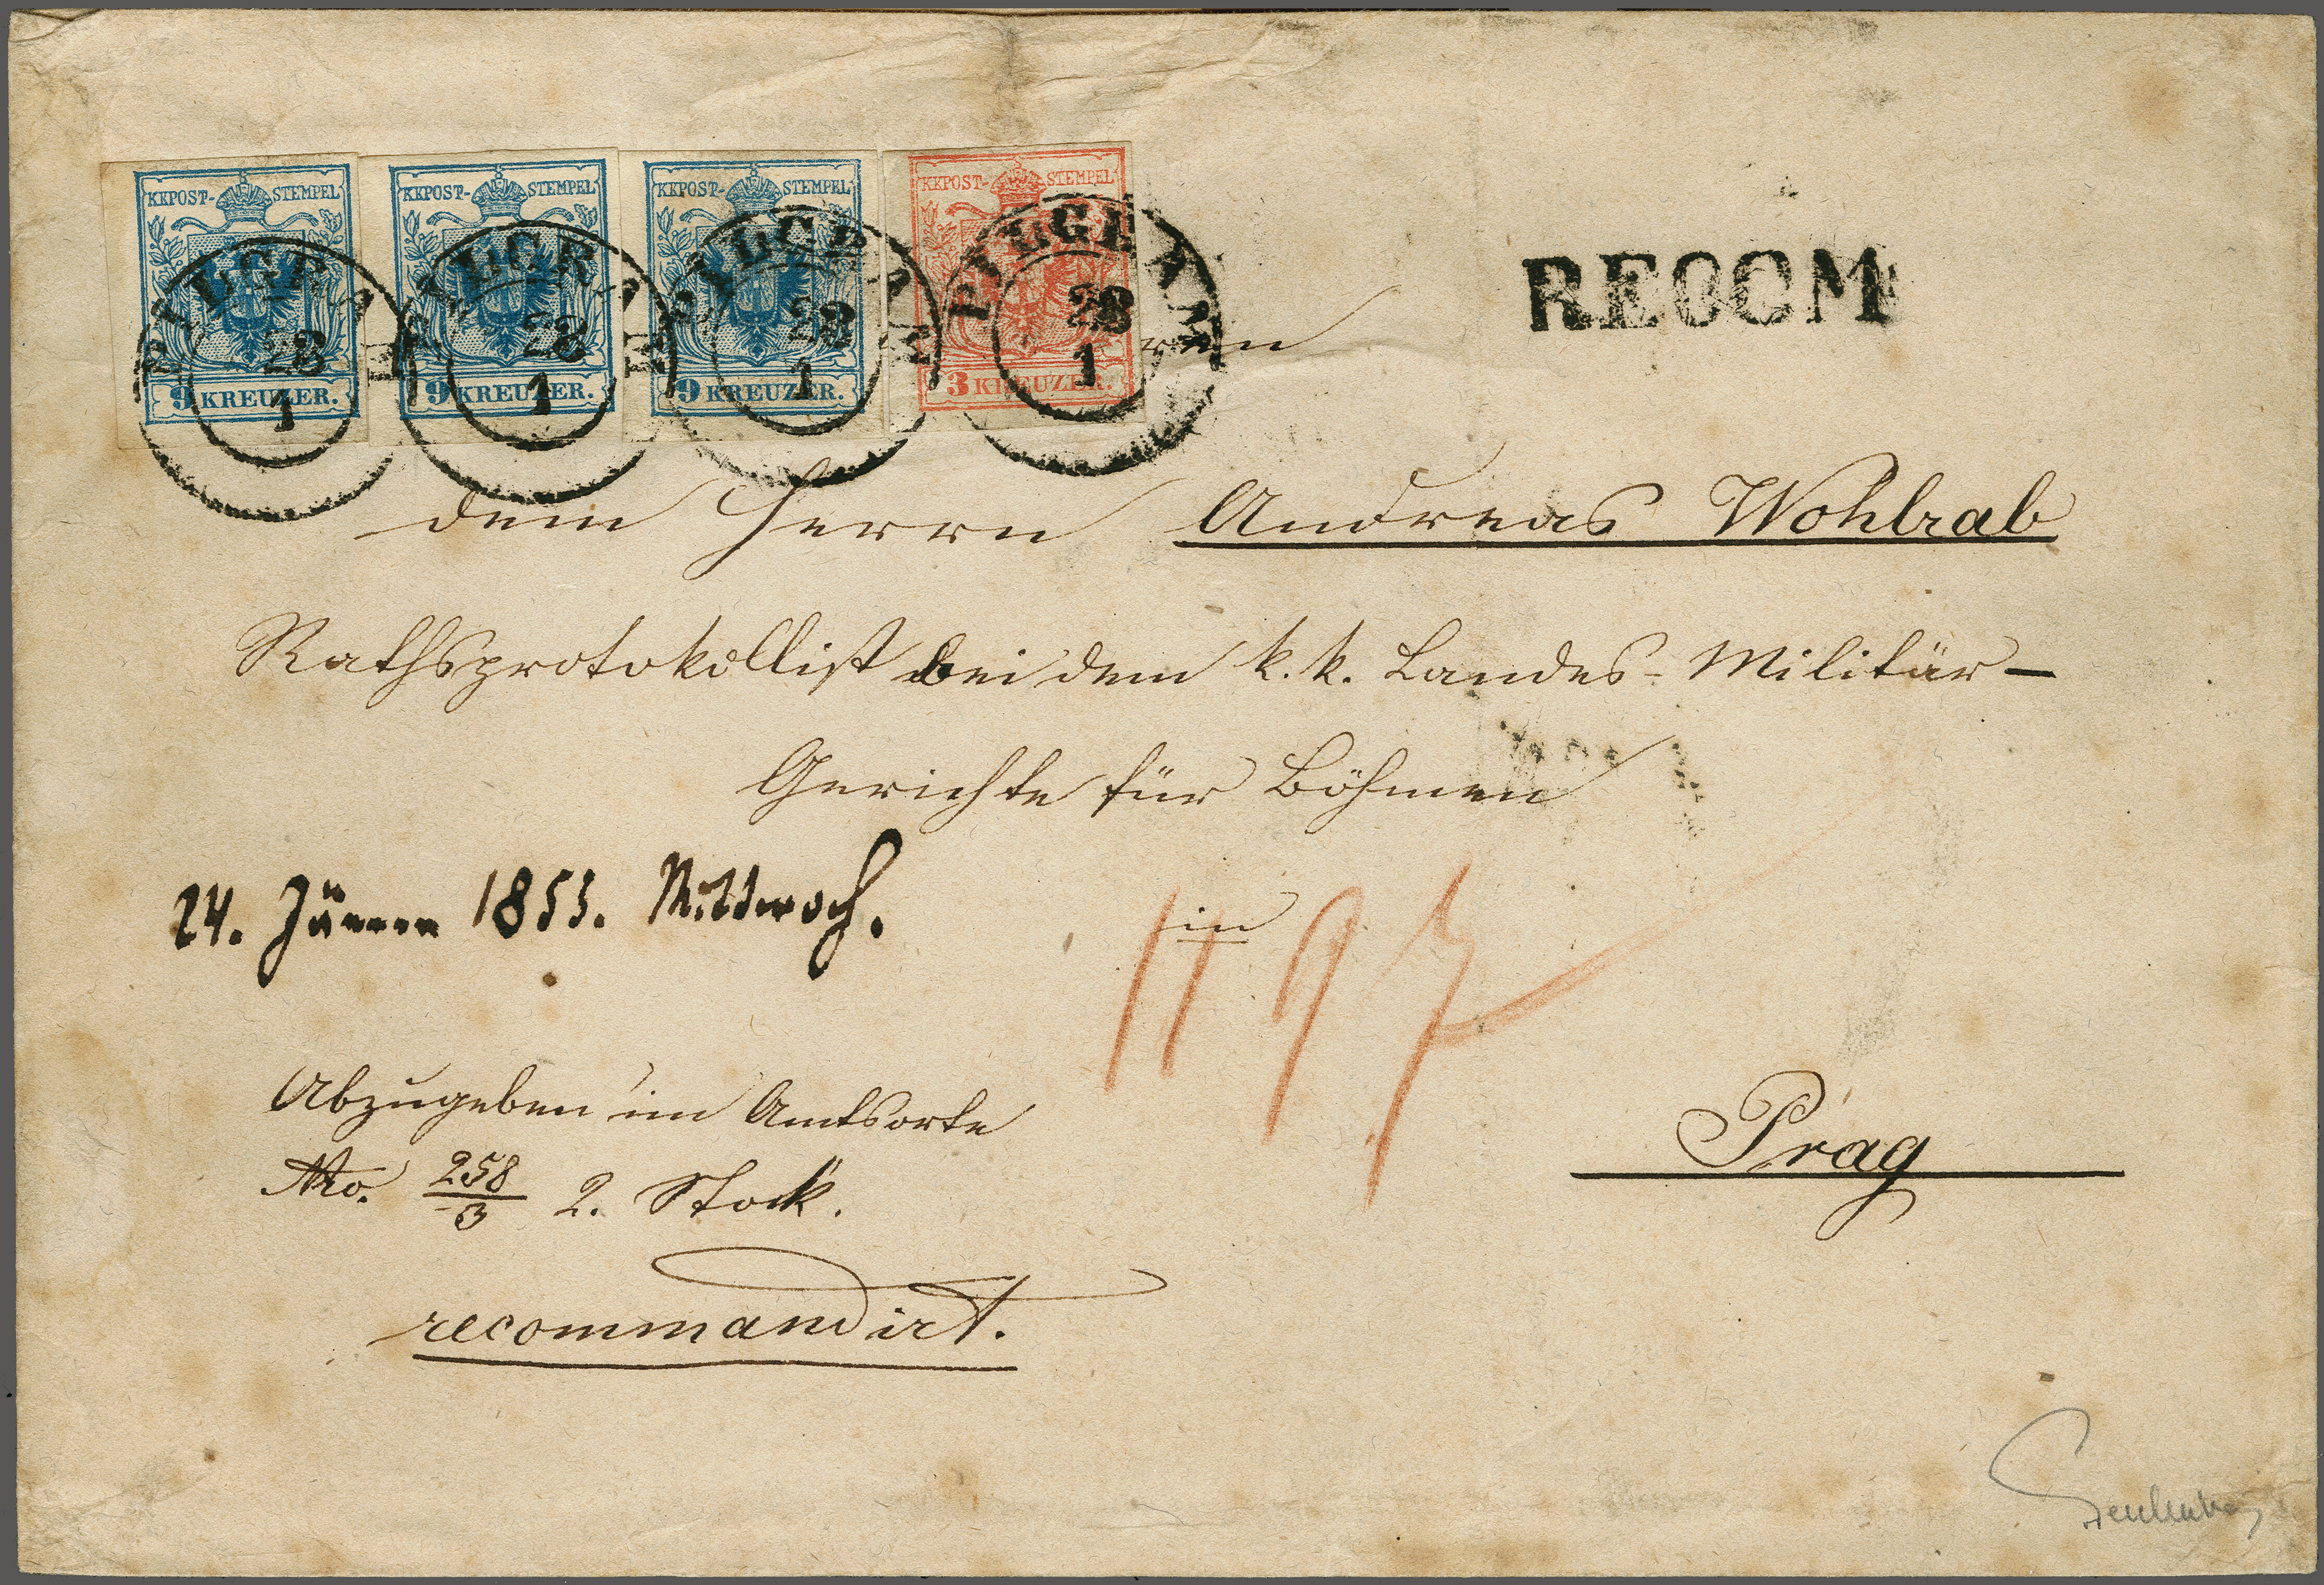 KKPOST-STEMPEL KKPOST-STEMPEL KKPOST-STEMPEL KKPOST-STEMPEL
PILGRAM PILGRAM PILGRAM PILGRAM
28 28 28 28
1 1 1 1
9 KREUZER. 9 KREUZER. 9 KREUZER. 3 KREUZER.
RECOM
dem Herrn Andreas Wohlrab
Rathsprotokollist bei dem k. k. Landes-Militär-
Gerichte für Böhmen
24. Jänner 1855. Mittwoch.
in
Abzugeben im Amtsorte
No. 258/3 2. Stock.
Prag
recommandirt.